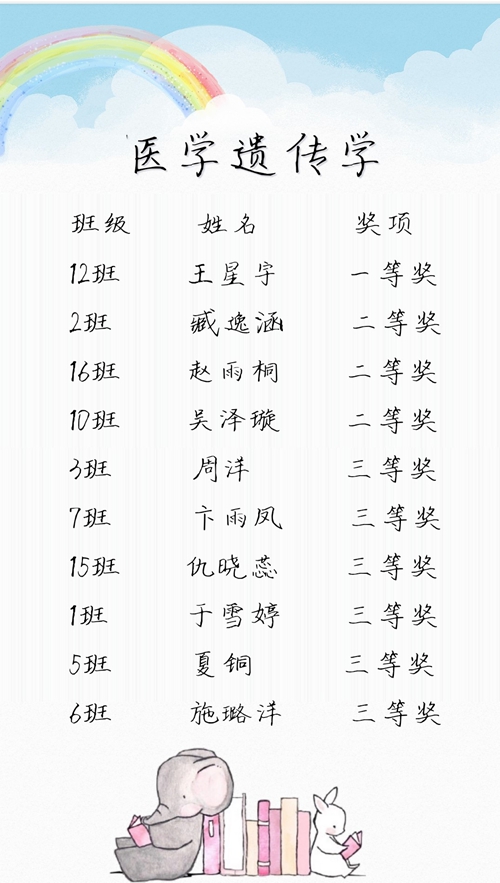 医学遗传学
班级 姓名 奖项
12班 王星宇 一等奖
2班 臧逸涵 二等奖
16班 赵雨桐 二等奖
10班 吴泽璇 二等奖
3班 周洋 三等奖
7班 卞雨凤 三等奖
15班 仇晓蕊 三等奖
1班 于雪婷 三等奖
5班 夏铜 三等奖
6班 施璐洋 三等奖